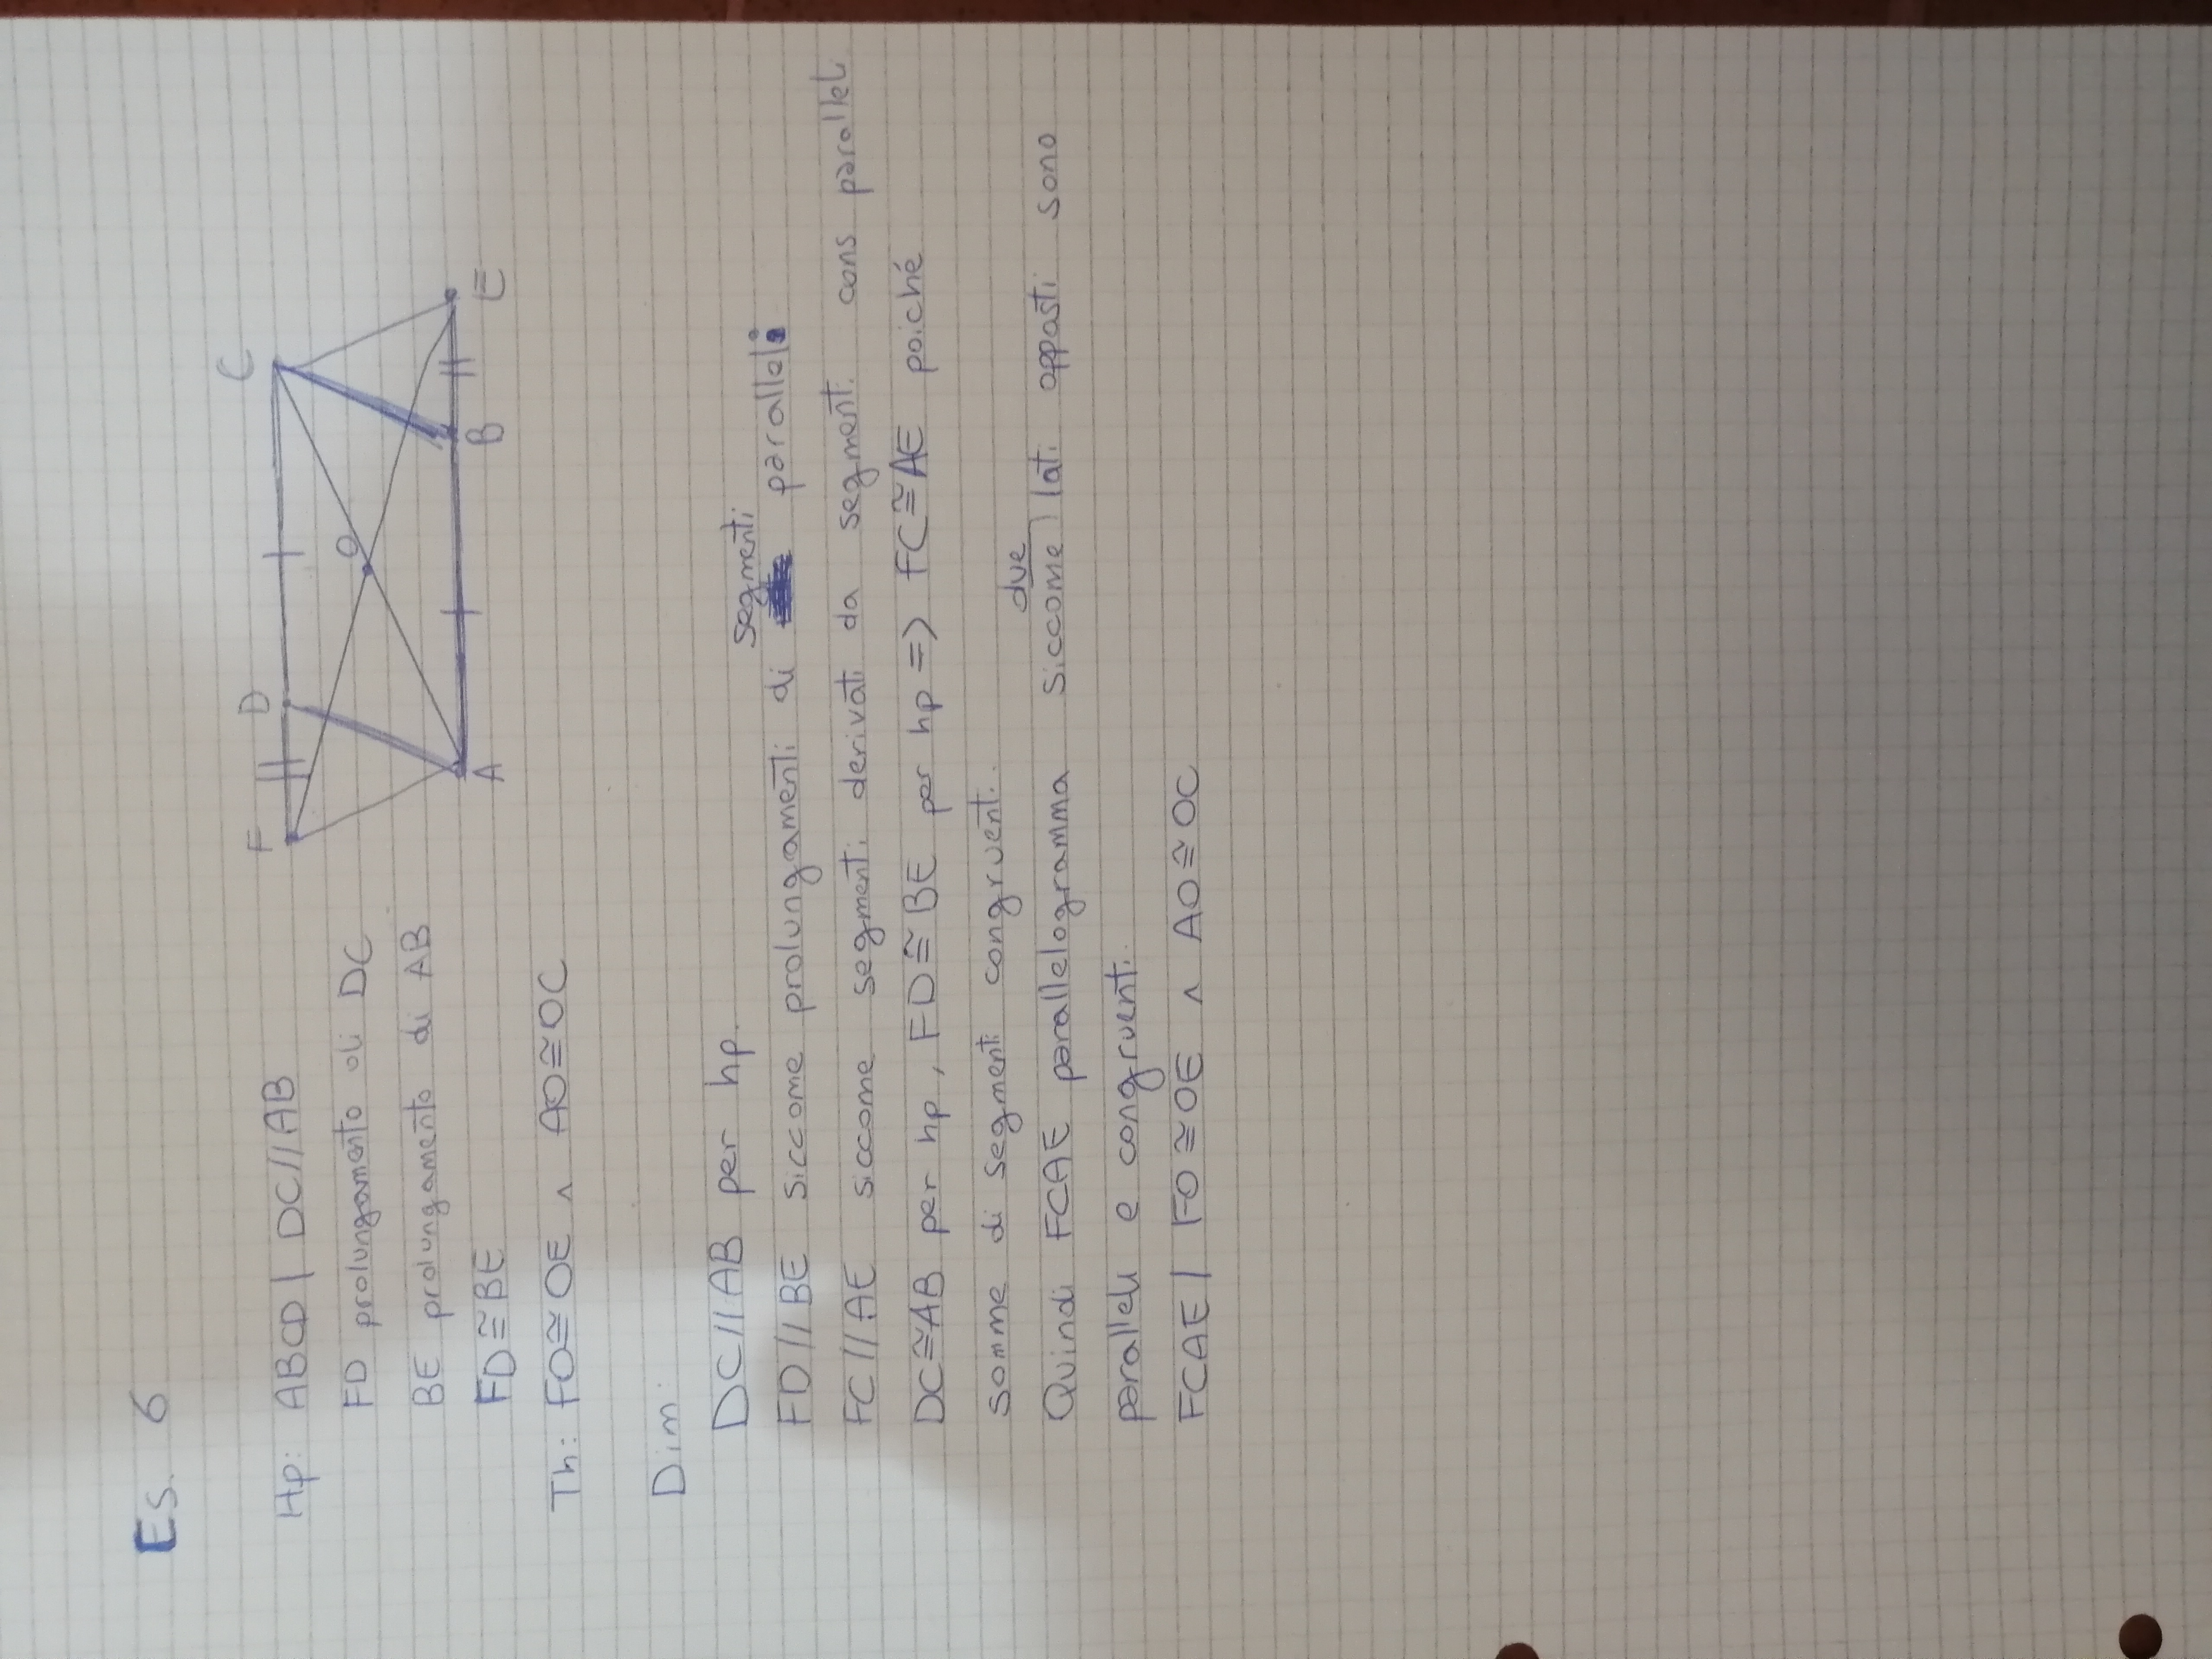 Es. 6
Hp: ABCD | DC//AB
FD prolungamento di DC
BE prolungamento di AB
FD≅BE
Th: FO≅OE ∧ AO≅OC
F D C
O
A B E
Dim:
DC//AB per hp.
segmenti
FD//BE siccome prolungamenti di paralleli
FC//AE siccome segmenti derivati da segmenti cons parallel
DC≅AB per hp, FD≅BE per hp => FC≅AE poiché
somme di segmenti congruenti.
due
Quindi FCAE parallelogramma siccome lati opposti sono
paralleli e congruenti.
FCAE | FO≅OE ∧ AO≅OC